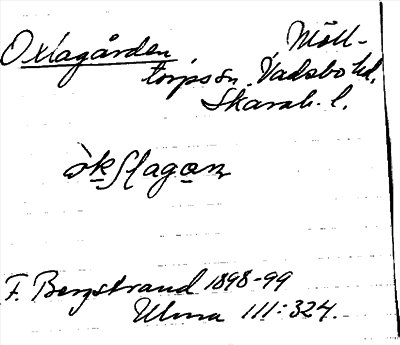 Oxlagården Möll-
torps sn. Vadsbo hd.
Skarab. l.
òkslagan
F. Bergstrand 1898-99
Ulma 111:324.